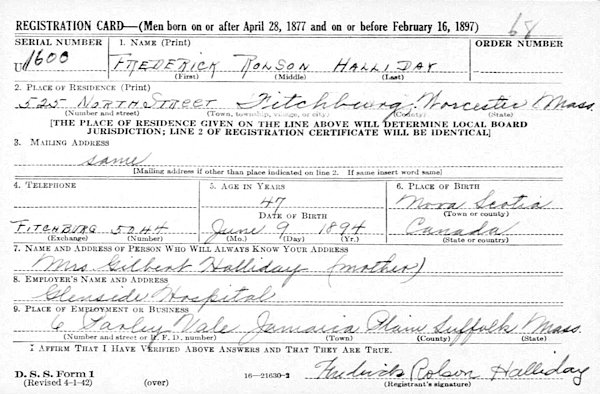 REGISTRATION CARD—(Men born on or after April 28, 1877 and on or before February 16, 1897) 68
SERIAL NUMBER 1. NAME (Print) ORDER NUMBER
U 1600 FREDERICK ROLSON HALLIDAY
(First) (Middle) (Last)
2. PLACE OF RESIDENCE (Print)
525 NORTH STREET Fitchburg, Worcester Mass.
(Number and street) (Town, township, village, or city) (County) (State)
[THE PLACE OF RESIDENCE GIVEN ON THE LINE ABOVE WILL DETERMINE LOCAL BOARD
JURISDICTION; LINE 2 OF REGISTRATION CERTIFICATE WILL BE IDENTICAL]
3. MAILING ADDRESS
same
[Mailing address if other than place indicated on line 2. If same insert word same]
4. TELEPHONE 5. AGE IN YEARS 6. PLACE OF BIRTH
47 Nova Scotia
DATE OF BIRTH (Town or county)
FITCHBURG 5044 June 9 1894 Canada
(Exchange) (Number) (Mo.) (Day) (Yr.) (State or country)
7. NAME AND ADDRESS OF PERSON WHO WILL ALWAYS KNOW YOUR ADDRESS
Mrs Gilbert Halliday (mother)
8. EMPLOYER'S NAME AND ADDRESS
Glenside Hospital
9. PLACE OF EMPLOYMENT OR BUSINESS
6 Parley Vale Jamaica Plain Suffolk Mass.
(Number and street or R. F. D. number) (Town) (County) (State)
I AFFIRM THAT I HAVE VERIFIED ABOVE ANSWERS AND THAT THEY ARE TRUE.
D. S. S. Form 1
(Revised 4-1-42) (over) 16—21630-2 Frederick Rolson Halliday
(Registrant's signature)